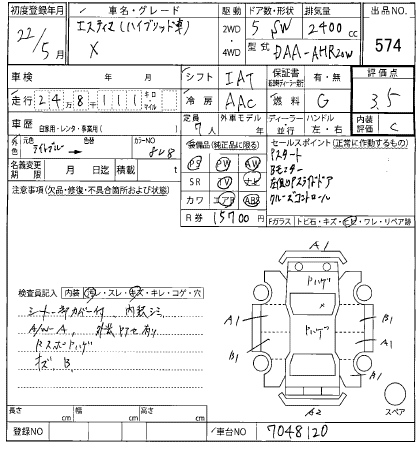 初度登録年月
22/5月
車名・グレード
エスティマ(ハイブリッド車)
X
駆動 ドア数・形状 排気量
2WD・4WD 5 SW 2400 cc
型式 DAA-AHR20W
出品NO.
574
車検 年 月
シフト IAT
保証書 有・無
評価点
3.5
走行 248111 キロ マイル
冷房 AAC
燃料 G
車歴 自家用・レンタ・事業用( )
定員 7人
外車モデル 年
ディーラー 並行
ハンドル 左・右
内装評価 C
外色 元色 色替 カラーNO
8V8
名義変更期限 月 日 積載 t
装備品(純正品に限る)
PS PW AW
SR TV ナビ
カワ エアB ABS
R券 15700 円
セールスポイント(正常に作動するもの)
Pスタート
Bモニター
左側Pスライドドア
クルーズコントロール
Fガラス トビ石・キズ・ヒビ・ワレ・リペア跡
注意事項(欠品・修復・不具合箇所および状態)
検査員記入 内装 ヨゴレ・スレ・キズ・キレ・コゲ・穴
シートカバー付 内装シミ
A/W-A
キズ B
A1
Pハゲ
X
A1 B1
Pハゲ
B1 A1
A1
A2
スペア
長さ cm 幅 cm 高さ cm
登録NO
車台NO 7048120